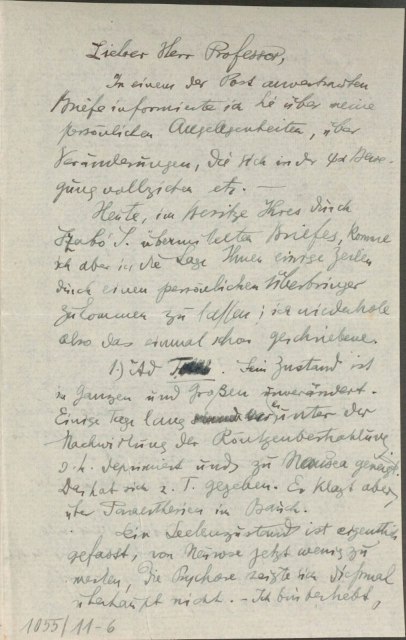 Lieber Herr Professor,
In einem der Post anvertrauten
Briefe informierte ich Sie über meine
persönlichen Angelegenheiten, über
Veränderungen, die sich in der ψα Bewe-
gung vollziehen etc. —
Heute, im Besitze Ihres durch
Szabó S. übermittelten Briefes, komme
ich aber in die Lage Ihnen einige Zeilen
durch einen persönlichen Überbringer
zukommen zu lassen; ich wiederhole
also das einmal schon geschriebene.
1) Ad. Sein Zustand ist
im Ganzen und Großen unverändert.
Einige Tage lang er unter der
Nachwirkung der Röntgenbestrahlung
d. h. deprimiert und zu Nausea geneigt.
Das hat sich z. T. gegeben. Er klagt aber
über Paraesthesien im Bauch.
Sein Seelenzustand ist eigentlich
gefasst, von Neurose jetzt wenig zu
merken, die Psychose zeigte sich diesmal
überhaupt nicht. — Ich bin
1055/11-6